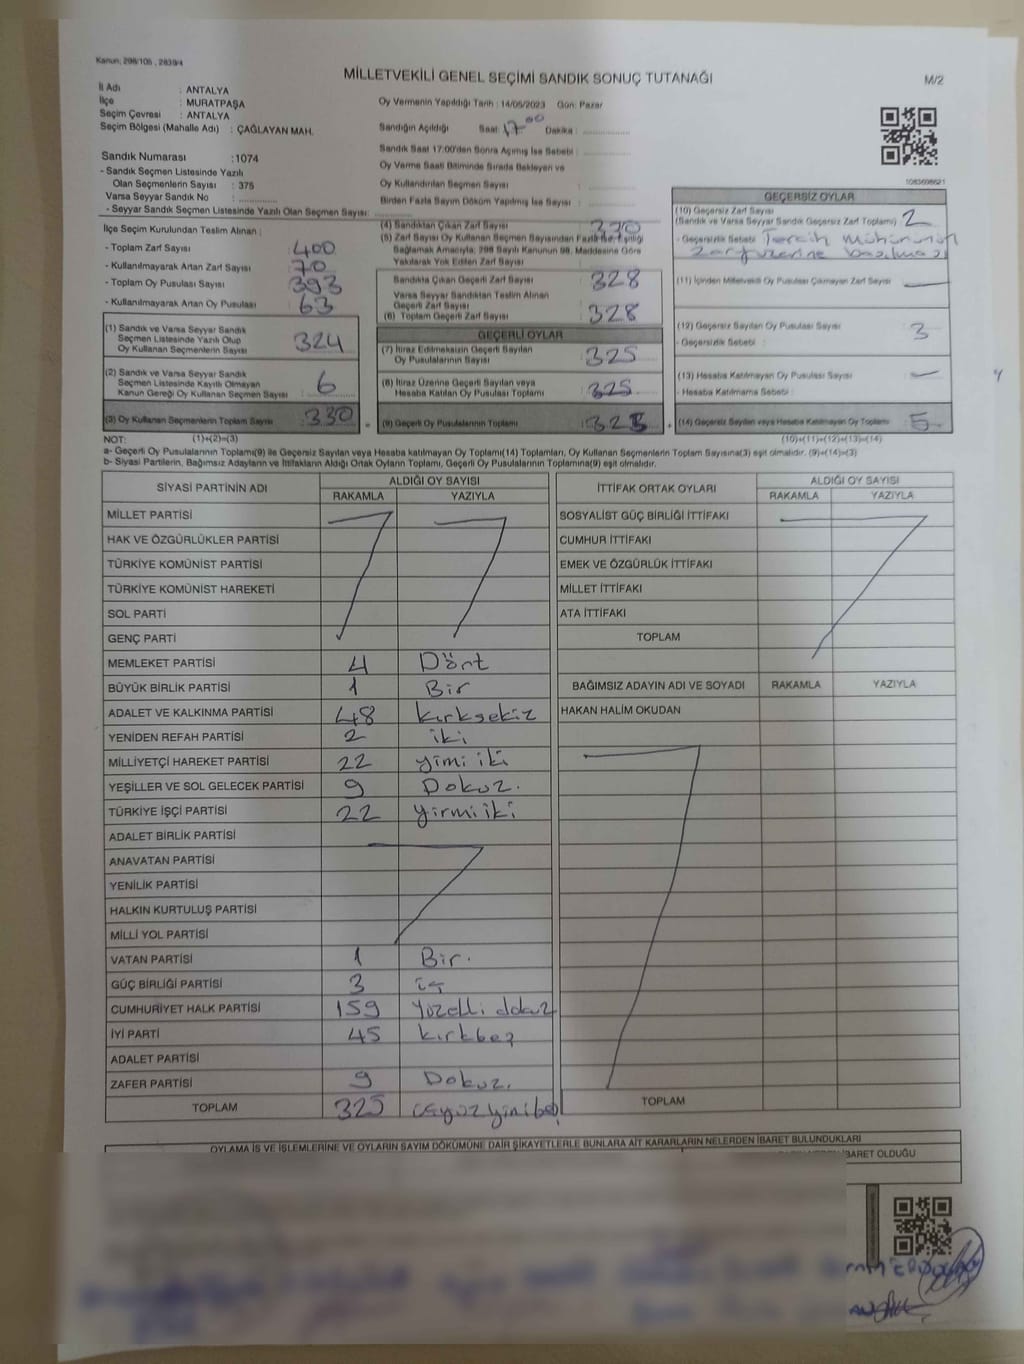 Kanun: 298/105 , 2839/4
MİLLETVEKİLİ GENEL SEÇİMİ SANDIK SONUÇ TUTANAĞI
M/2
İl Adı : ANTALYA
İlçe : MURATPAŞA
Seçim Çevresi : ANTALYA
Seçim Bölgesi (Mahalle Adı) : ÇAĞLAYAN MAH.
Oy Vermenin Yapıldığı Tarih : 14/05/2023 Gün: Pazar
Sandığın Açıldığı Saat: 17 00 Dakika : ..............
Sandık Saat 17:00'den Sonra Açılmış İse Sebebi : ..............
Oy Verme Saati Bitiminde Sırada Bekleyen ve
Oy Kullandırılan Seçmen Sayısı : ..............
Birden Fazla Sayım Döküm Yapılmış İse Sayısı : ..............
Sandık Numarası :1074
- Sandık Seçmen Listesinde Yazılı
Olan Seçmenlerin Sayısı : 375
Varsa Seyyar Sandık No : ..............
- Seyyar Sandık Seçmen Listesinde Yazılı Olan Seçmen Sayısı: ..............
1083698621
İlçe Seçim Kurulundan Teslim Alınan :
- Toplam Zarf Sayısı : 400
- Kullanılmayarak Artan Zarf Sayısı : 70
- Toplam Oy Pusulası Sayısı : 393
- Kullanılmayarak Artan Oy Pusulası : 63
(1) Sandık ve Varsa Seyyar Sandık
Seçmen Listesinde Yazılı Olup
Oy Kullanan Seçmenlerin Sayısı : 324
(2) Sandık ve Varsa Seyyar Sandık
Seçmen Listesinde Kayıtlı Olmayan
Kanun Gereği Oy Kullanan Seçmen Sayısı : 6
(3) Oy Kullanan Seçmenlerin Toplam Sayısı : 330
(4) Sandıktan Çıkan Zarf Sayısı : 330
(5) Zarf Sayısı Oy Kullanan Seçmen Sayısından Fazla İse, Eşitliği
Sağlamak Amacıyla; 298 Sayılı Kanunun 98. Maddesine Göre
Yakılarak Yok Edilen Zarf Sayısı :
Sandıkta Çıkan Geçerli Zarf Sayısı : 328
Varsa Seyyar Sandıktan Teslim Alınan
Geçerli Zarf Sayısı :
(6) Toplam Geçerli Zarf Sayısı : 328
GEÇERLİ OYLAR
(7) İtiraz Edilmeksizin Geçerli Sayılan
Oy Pusulalarının Sayısı : 325
(8) İtiraz Üzerine Geçerli Sayılan veya
Hesaba Katılan Oy Pusulası Toplamı : 325
(9) Geçerli Oy Pusulalarının Toplamı : 325
GEÇERSİZ OYLAR
(10) Geçersiz Zarf Sayısı
(Sandık ve Varsa Seyyar Sandık Geçersiz Zarf Toplamı) : 2
- Geçersizlik Sebebi : Tercih mühürünün
zarf üzerine basılması
(11) İçinden Milletvekili Oy Pusulası Çıkmayan Zarf Sayısı : —
(12) Geçersiz Sayılan Oy Pusulası Sayısı : 3
- Geçersizlik Sebebi :
(13) Hesaba Katılmayan Oy Pusulası Sayısı : —
- Hesaba Katılmama Sebebi :
(14) Geçersiz Sayılan veya Hesaba Katılmayan Oy Toplamı : 5
NOT: (1)+(2)=(3) (10)+(11)+(12)+(13)=(14)
a- Geçerli Oy Pusulalarının Toplamı(9) ile Geçersiz Sayılan veya Hesaba katılmayan Oy Toplamı(14) Toplamları, Oy Kullanan Seçmenlerin Toplam Sayısına(3) eşit olmalıdır. (9)+(14)=(3)
b- Siyasi Partilerin, Bağımsız Adayların ve İttifakların Aldığı Ortak Oyların Toplamı, Geçerli Oy Pusulalarının Toplamına(9) eşit olmalıdır.
SİYASİ PARTİNİN ADI ALDIĞI OY SAYISI
RAKAMLA YAZIYLA
MİLLET PARTİSİ
HAK VE ÖZGÜRLÜKLER PARTİSİ
TÜRKİYE KOMÜNİST PARTİSİ
TÜRKİYE KOMÜNİST HAREKETİ
SOL PARTİ
GENÇ PARTİ
MEMLEKET PARTİSİ 4 Dört
BÜYÜK BİRLİK PARTİSİ 1 Bir
ADALET VE KALKINMA PARTİSİ 48 kırksekiz
YENİDEN REFAH PARTİSİ 2 iki
MİLLİYETÇİ HAREKET PARTİSİ 22 yimi iki
YEŞİLLER VE SOL GELECEK PARTİSİ 9 Dokuz.
TÜRKİYE İŞÇİ PARTİSİ 22 yirmi iki
ADALET BİRLİK PARTİSİ
ANAVATAN PARTİSİ
YENİLİK PARTİSİ
HALKIN KURTULUŞ PARTİSİ
MİLLİ YOL PARTİSİ
VATAN PARTİSİ 1 Bir.
GÜÇ BİRLİĞİ PARTİSİ 3 üç
CUMHURİYET HALK PARTİSİ 159 Yüzelli dokuz
İYİ PARTİ 45 kırkbeş
ADALET PARTİSİ
ZAFER PARTİSİ 9 Dokuz.
TOPLAM 325
İTTİFAK ORTAK OYLARI ALDIĞI OY SAYISI
RAKAMLA YAZIYLA
SOSYALİST GÜÇ BİRLİĞİ İTTİFAKI
CUMHUR İTTİFAKI
EMEK VE ÖZGÜRLÜK İTTİFAKI
MİLLET İTTİFAKI
ATA İTTİFAKI
TOPLAM
BAĞIMSIZ ADAYIN ADI VE SOYADI RAKAMLA YAZIYLA
HAKAN HALİM OKUDAN
TOPLAM
OYLAMA İŞ VE İŞLEMLERİNE VE OYLARIN SAYIM DÖKÜMÜNE DAİR ŞİKAYETLERLE BUNLARA AİT KARARLARIN NELERDEN İBARET BULUNDUKLARI
İBARET OLDUĞU